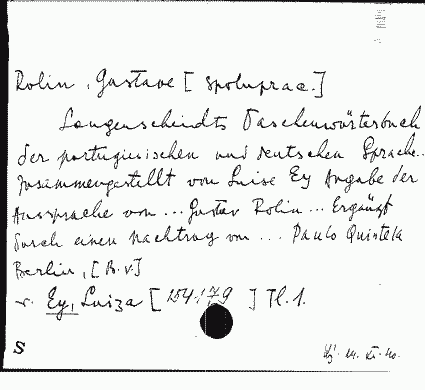 Rolin, Gustave [spoluprac.]
Langenscheidts Taschenwörterbuch
der portugiesischen und deutschen Sprache..
zusammengestellt von Luise Ey Angabe der
Aussprache von ... Gustav Rolin ... Ergänzt
durch einen Nachtrag von ... Paulo Quintela
Berlin, [B.v.]
v. Ey, Luiza [ ] Tl. 1.
S